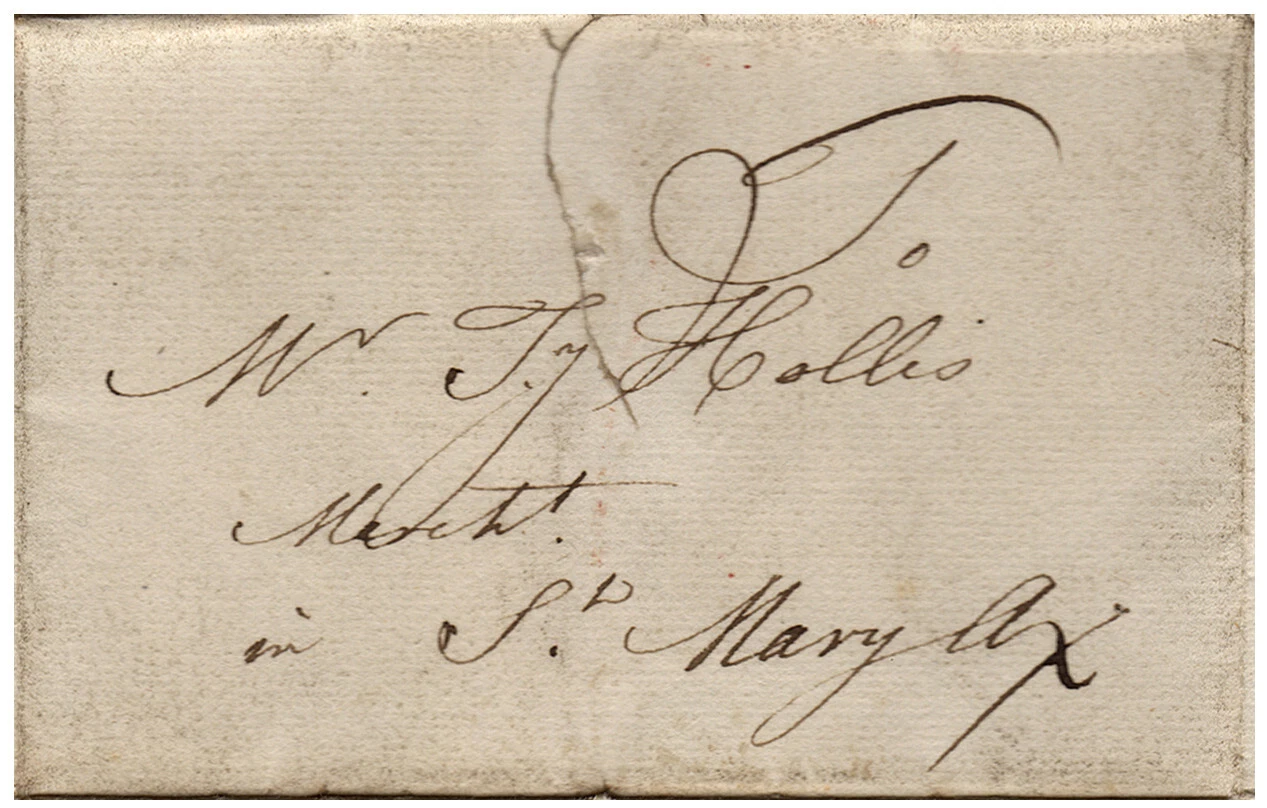 To
Mr. Ty Hollis
Mercht.
in St. Mary Ax